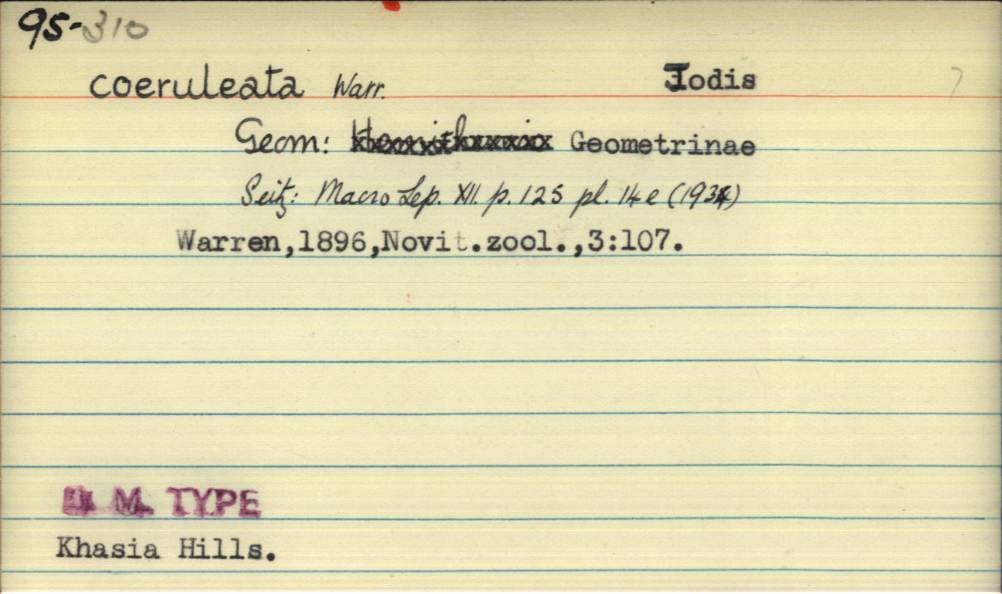 95-310
coeruleata Warr. Iodis
Geom: Geometrinae
Seitz: Macro Lep. XII. p. 125 pl. 14e (1934)
Warren,1896,Novit.zool.,3:107.
B. M. TYPE
Khasia Hills.